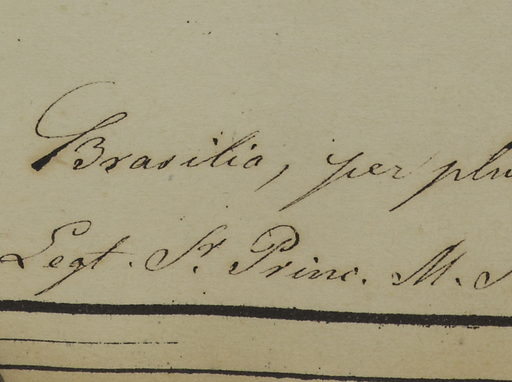 Brasilia, per plu
Legt. Sr. Princ. M.